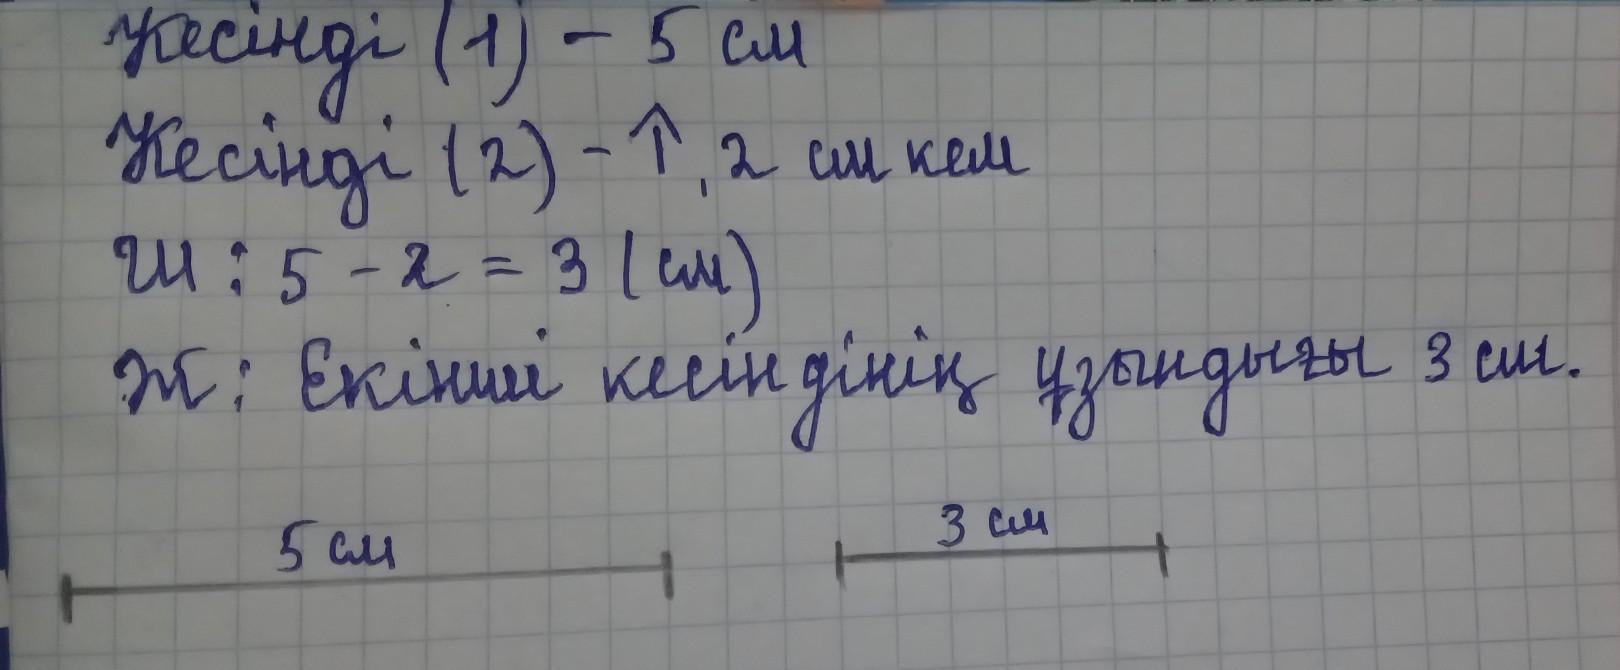 Кесінді (1) - 5 см
Кесінді (2) - ↑, 2 см кем
Ш: 5 - 2 = 3 (см)
Ж: Екінші кесіндінің ұзындығы 3 см.
5 см
3 см